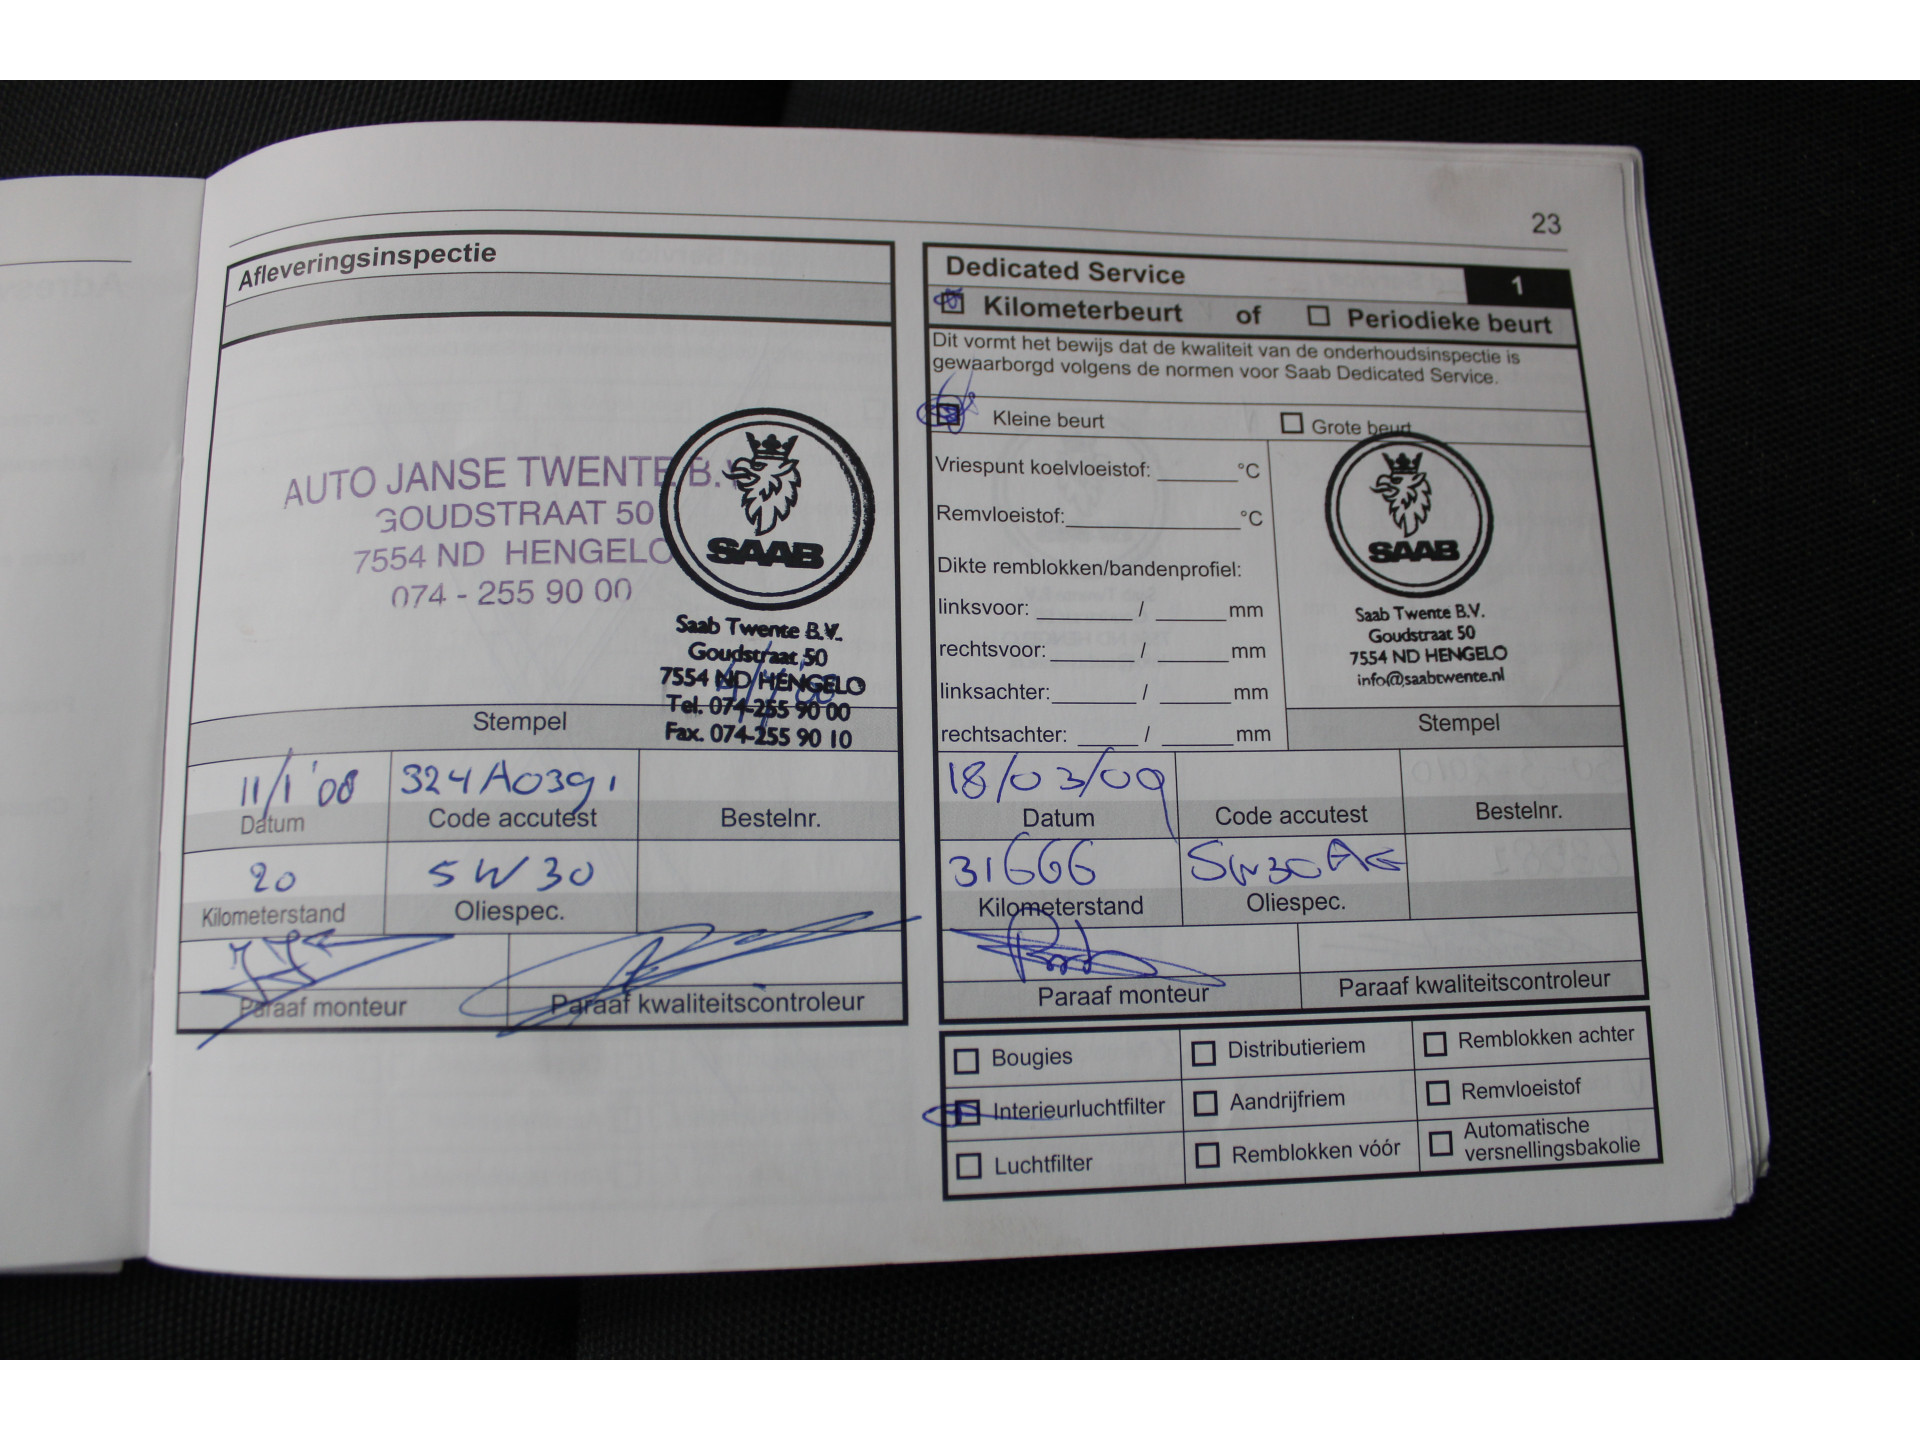 23
Afleveringsinspectie
AUTO JANSE TWENTE B.V
GOUDSTRAAT 50
7554 ND HENGELO
074 - 255 90 00
SAAB
Saab Twente B.V.
Goudstraat 50
7554 ND HENGELO
Tel. 074-255 90 00
Fax. 074-255 90 10
Stempel
11/1 '08 324A0391
Datum Code accutest Bestelnr.
20 5W30
Kilometerstand Oliespec.
Paraaf monteur Paraaf kwaliteitscontroleur
Dedicated Service 1
Kilometerbeurt of Periodieke beurt
Dit vormt het bewijs dat de kwaliteit van de onderhoudsinspectie is
gewaarborgd volgens de normen voor Saab Dedicated Service.
Kleine beurt Grote beurt
Vriespunt koelvloeistof: ______ °C
Remvloeistof: ______ °C
Dikte remblokken/bandenprofiel:
linksvoor: ______ / ______ mm
rechtsvoor: ______ / ______ mm
linksachter: ______ / ______ mm
rechtsachter: ______ / ______ mm
SAAB
Saab Twente B.V.
Goudstraat 50
7554 ND HENGELO
info@saabtwente.nl
Stempel
18/03/09
Datum Code accutest Bestelnr.
31666 5W30
Kilometerstand Oliespec.
Paraaf monteur Paraaf kwaliteitscontroleur
Bougies Distributieriem Remblokken achter
Interieurluchtfilter Aandrijfriem Remvloeistof
Luchtfilter Remblokken vóór Automatische
versnellingsbakolie